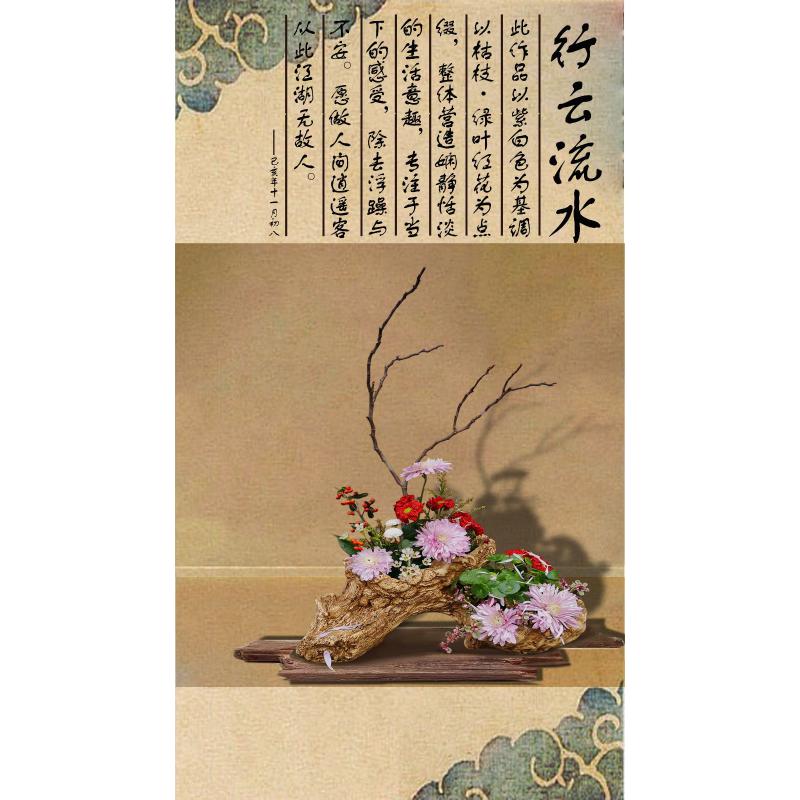 行云流水
此作品以紫白色为基调
以枯枝·绿叶红花为点
缀，整体营造娴静恬淡
的生活意趣，专注于当
下的感受，除去浮躁与
不安。愿做人间逍遥客
从此江湖无故人。
——己亥年十一月初八